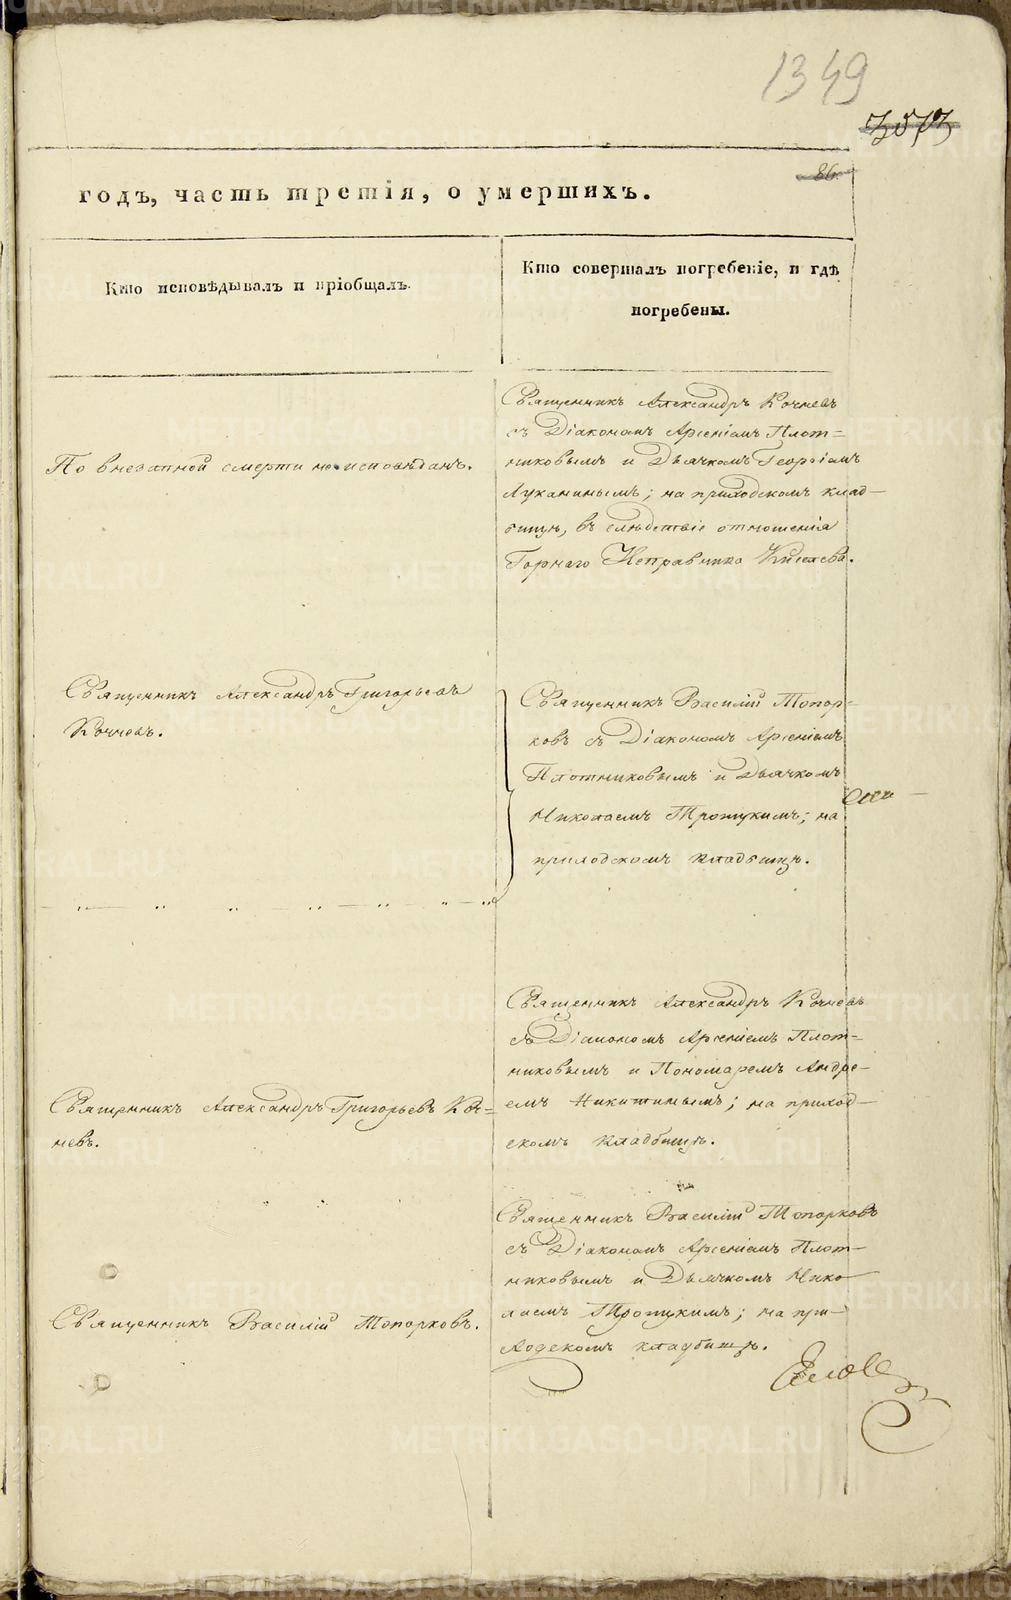 1349
3573
86.
годъ, часть третія, о умершихъ.
Кто исповѣдывалъ и пріобщалъ.
Кто совершалъ погребеніе, и гдѣ
погребены.
По внезапной смерти не исповѣданъ.
Священникъ Александръ Кочневъ
съ Діакономъ Арсеніемъ Плот=
никовымъ и Дьячкомъ Георгіемъ
Луканинымъ; на приходскомъ клад-
бищѣ, въ слѣдствіе отношенія
Горнаго Исправника Киселева.
Священникъ Александръ Григорьевъ
Кочневъ.
Священникъ Василій Топор-
ковъ съ Діакономъ Арсеніемъ
Плотниковымъ и Дьячкомъ
Николаемъ Троицкимъ; на
приходскомъ кладбищѣ.
Священникъ Александръ Григорьевъ Коч=
невъ.
Священникъ Александръ Кочневъ
съ Діакономъ Арсеніемъ Плот=
никовымъ и Пономаремъ Андре-
емъ Никитинымъ; на приход-
скомъ кладбищѣ.
Священникъ Василій Топорковъ.
Священникъ Василій Топорковъ
съ Діакономъ Арсеніемъ Плот-
никовымъ и Дьячкомъ Нико-
лаемъ Троицкимъ; на при-
ходскомъ кладбищѣ.
METRIKI.GASO-URAL.RU